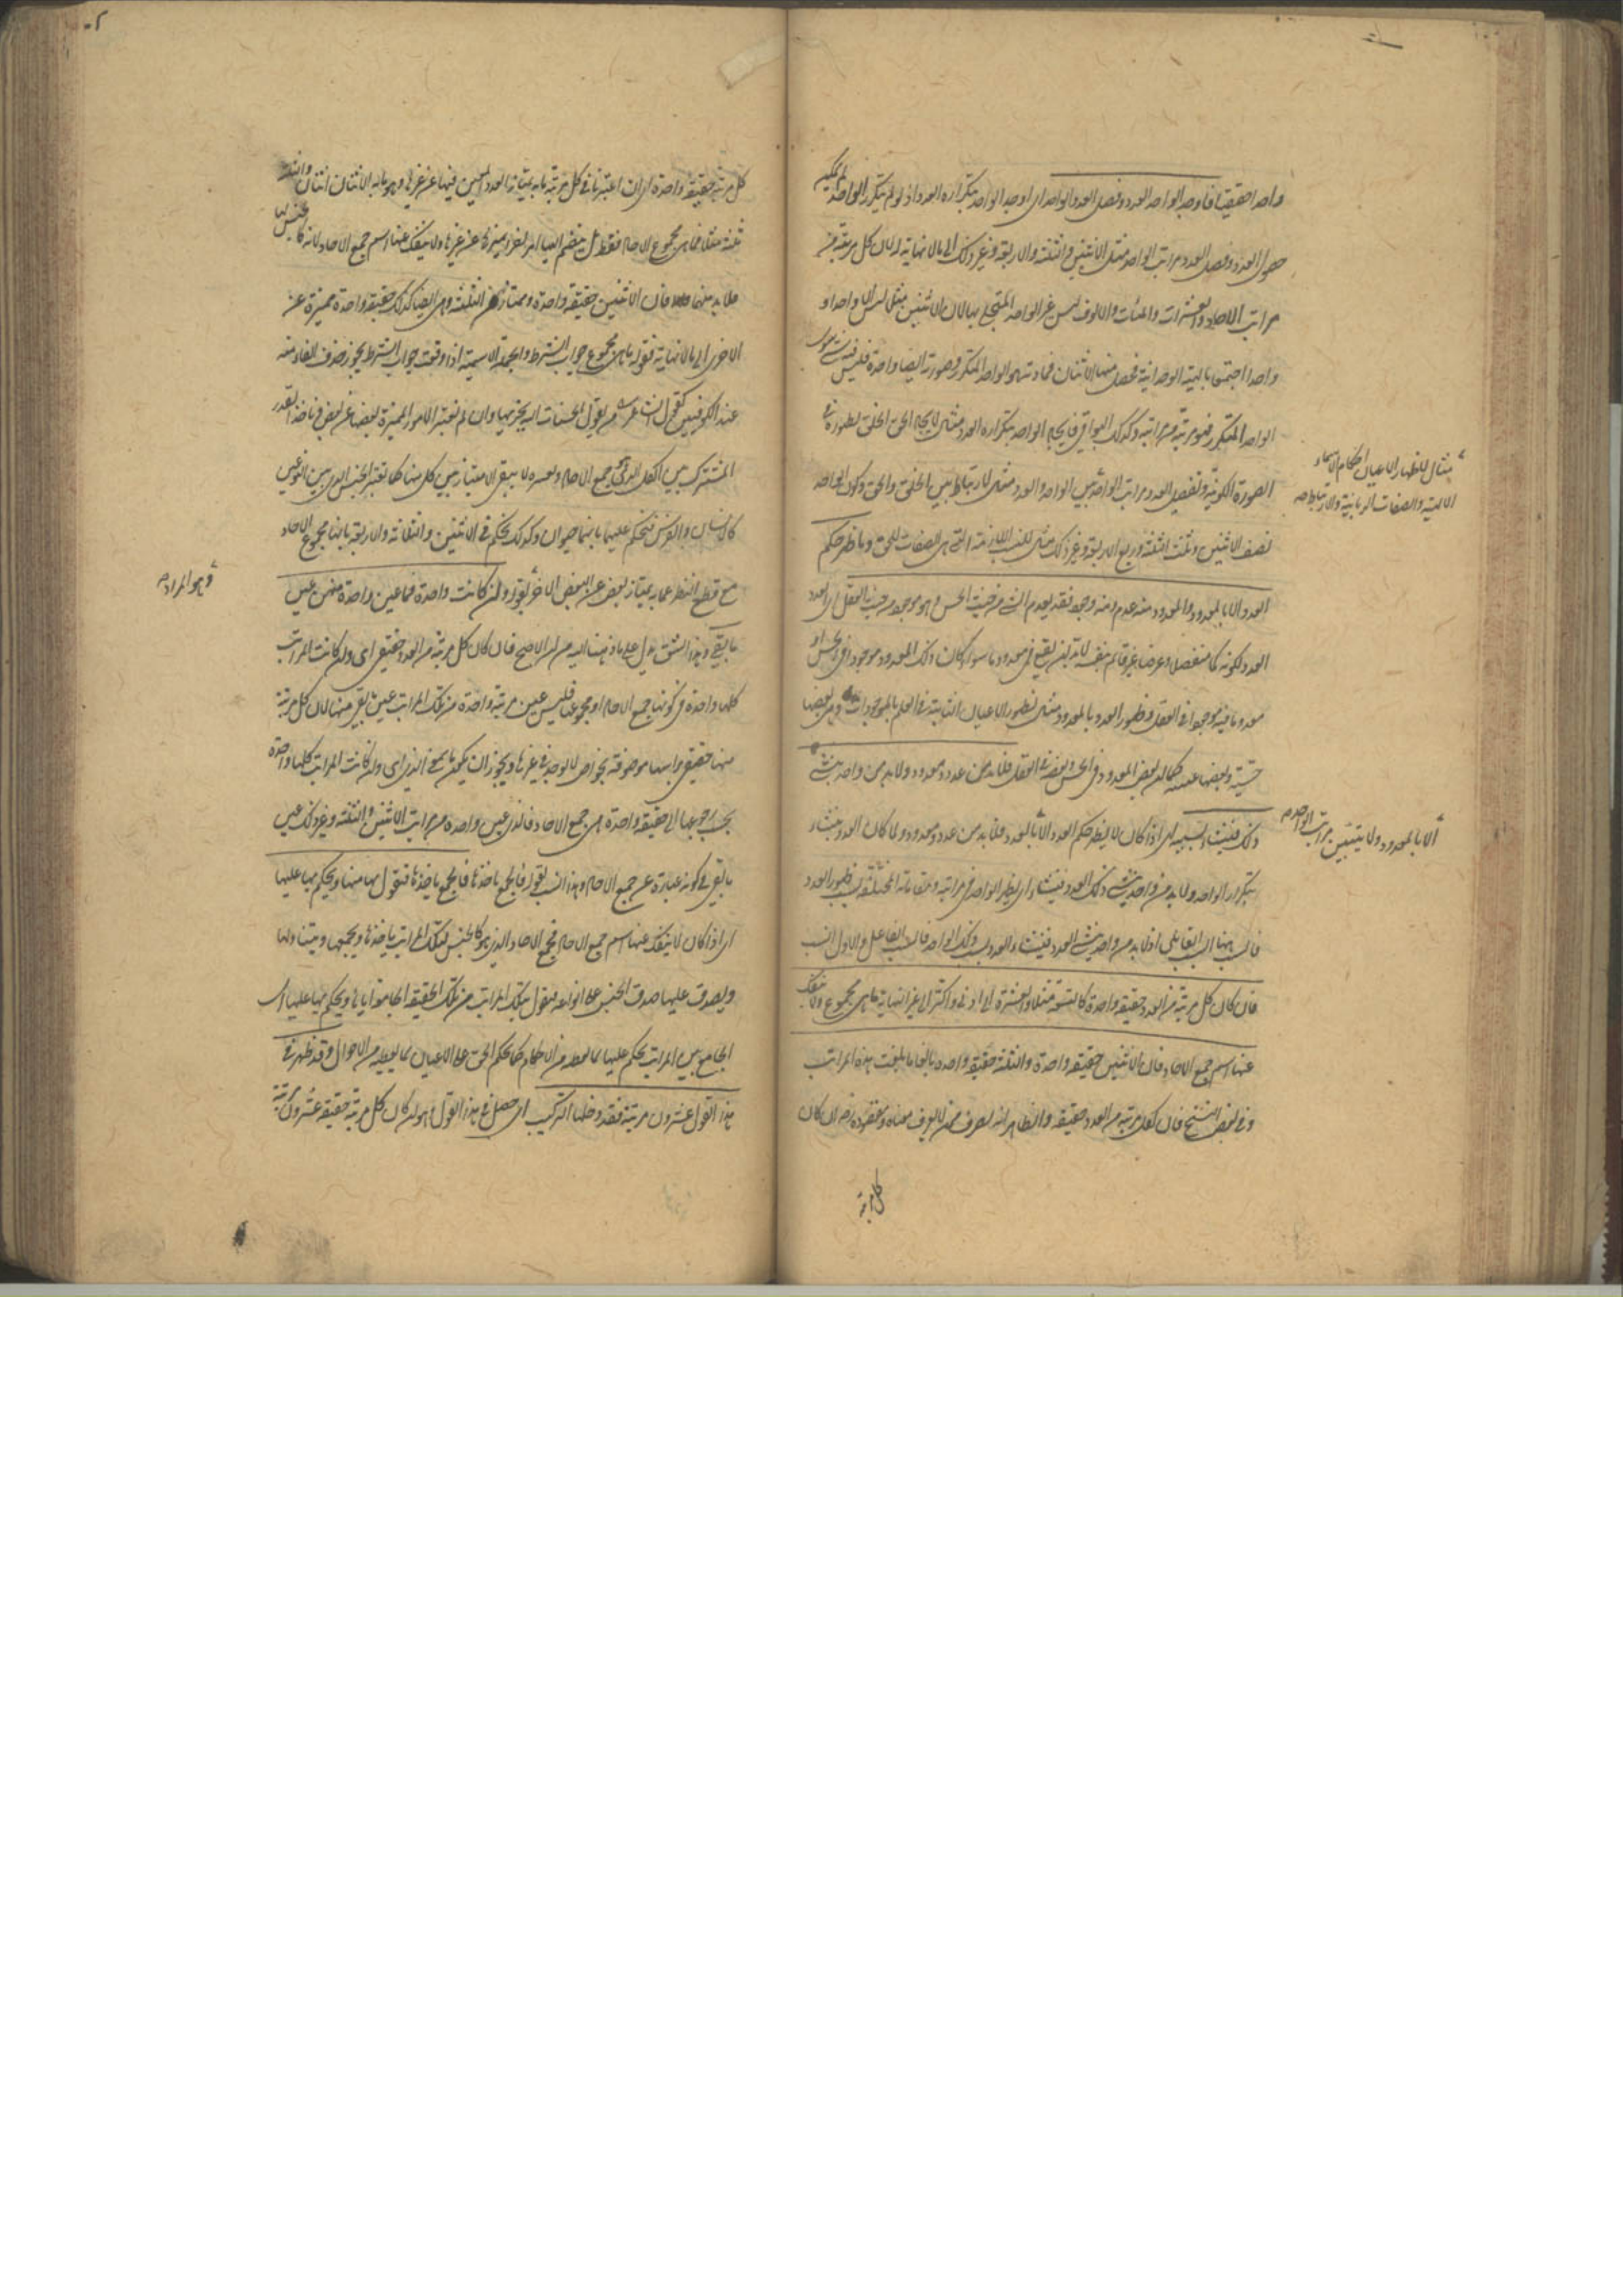 واحدا حقيقيا فاوجد الواحد العدد وفصل العدد الواحد اى اوجد الواحد بتكراره العدد اذ لو لم يتكرر الواحد لم يمكن
حصول العدد وفصل العدد مراتب الواحد مثل الاثنين والثلثة والاربعة وغير ذلك الى ما لا نهاية له لان كل مرتبة من
مراتب الآحاد والعشرات والمئات والالوف ليس غير الواحد المتجلى بها لان الاثنين مثلا ليس الا واحدا و
واحدا اجتمعا بالهيئة الوحدانية فحصل منهما الاثنان فمادته هو الواحد المتكرر وصورته ايضا واحدة فليس فيه شئ سوى
الواحد المتكرر فهو مرتبة من مراتبه وكذلك البواقى فايجاد الواحد بتكراره العدد مثال لايجاد الحق الخلق بظهوره فى
الصورة الكونية وتفصيل العدد مراتب الواحد
مثال لاظهار الاعيان احكام الاسماء
الالهية والصفات الربانية والارتباط صح
بين الواحد والعدد مثال للارتباط بين الخلق والحق وكون الواحد
نصف الاثنين وثلث الثلثة وربع الاربعة وغير ذلك مثال للنسب اللازمة التى هى الصفات للحق وما ظهر حكم
العدد الا بالمعدود والمعدود منه عدم ومنه وجود فقد يعدم الشئ من حيث الحس وهو موجود من حيث العقل اى العدد
العدد لكونه كما منفصلا وعرضا غير قائم بنفسه لا بد ان يقع فى معدود ما سواء كان ذلك المعدود موجودا فى الحس او
معدوما فيه موجودا فى العقل وظهور العدد بالمعدود مثال لظهور الاعيان الثابتة فى العلم بالموجودات وهى بعضها
حسية وبعضها غيبية كما ان بعض المعدود فى الحس وبعضه فى العقل فلا بد من عدد ومعدود ولا بد من واحد ينشئ
ذلك فينشأ بسببه اى اذا كان لا يظهر حكم العدد الا بالمعدود
الا بالمعدود ولا يتبين مراتب الواحد صح
فلا بد من عدد ومعدود ولما كان العدد ينشاء
بتكرار الواحد ولا بد من واحد ينشئ ذلك العدد فينشاء اى يظهر الواحد فى مراتبه ومقاماته المختلفة بسبب ظهور العدد
فالسبب هنا السبب القابلى اذ لا بد من واحد ينشئ العدد فينشاء العدد بسبب ذلك الواحد فالسبب الفاعل والاول انسب
فان كان كل مرتبة من العدد حقيقة واحدة كالتسعة مثلا والعشرة الى ادنى واكثر الى غير النهاية ما هى مجموع ولا ينفك
عنها اسم جمع الآحاد فان الاثنين حقيقة واحدة والثلثة حقيقة واحدة بالغا ما بلغت هذه المراتب
وفى بعض النسخ فان لكل مرتبة من العدد حقيقة والظاهر انه تصرف ممن لا يعرف معناه ومقصوده رضى ان كان
كل مرتبة
كل مرتبة حقيقة واحدة اى ان اعتبرنا فى كل مرتبة ما به يمتاز العدد المعين فيها عن غيرها وهو ما به الاثنان اثنان والثلثة
ثلثة مثلا فما هى مجموع الآحاد فقط بل ينضم اليها امر اخر يميزها عن غيرها ولا ينفك عنها اسم جمع الآحاد لانه كالجنس لها
فلا بد منها فان الاثنين حقيقة واحدة وممتازة من الثلثة وهى ايضا كذلك حقيقة واحدة متميزة عن
الاخرى الى ما لا نهاية فقوله ما هى مجموع جواب الشرط والجملة الاسمية اذا وقعت جواب الشرط يجوز حذف الفاء منه
عند الكوفيين كقول الشاعر من يفعل الحسنات الله يجزيها وان لم نعتبر الامور المميزة بعضها عن بعض فنأخذ القدر
المشترك بين الكل الذى هو جمع الآحاد ونعتبره لا يبقى الامتياز بين كل منها كما نعتبر الجنس الذى بين النوعين
كالانسان والفرس فنحكم عليهما بانهما حيوان وكذلك نحكم فى الاثنين والثلاثة والاربعة بانها مجموع الآحاد
مع قطع النظر عما به يمتاز بعض عن البعض الآخر وهو المراد صح بقوله وان كانت واحدة فما عين واحدة منهن عين
ما بقى وهذا الشق يدل على ما ذهبنا اليه من ان الاصح فان كان كل مرتبة من العدد حقيقى اى وان كانت المراتب
كلها واحدة فى كونها جمع الآحاد او مجموعها فليس عين مرتبة واحدة من تلك المراتب عين ما بقى منها لان كل مرتبة
منها حقيقة برأسها موصوفة بخواص لا توجد فى غيرها ويجوز ان يكون ما بمعنى الذى اى وان كانت المراتب كلها واحدة
بحسب رجوعها الى حقيقة واحدة هى جمع الآحاد فالذى عين واحدة من مراتب الاثنين والثلثة وغير ذلك عين
ما بقى فى كونه عبارة عن جمع الآحاد وهذا انسب بقوله فالجمع يأخذها فيقول بها منها ويحكم بها عليها
اى اذا كان لا ينفك عنها اسم جمع الآحاد فجمع الآحاد الذى هو كالجنس لتلك المراتب يأخذها ويجمعها ويتناولها
ويصدق عليها صدق الجنس على انواعه فنقول بتلك المراتب من تلك الحقيقة الجامعة اياها ويحكم بها عليها اى
الجامع بين المراتب يحكم عليها بما يعطيه من الاحكام كما يحكم الحق على الاعيان بما يعطيه من الاحوال وقد ظهر فى
هذا القول عشرون مرتبة فقد دخلها التركيب اى حصل فى هذا القول وهو ان كان كل مرتبة حقيقة عشرون مرتبة